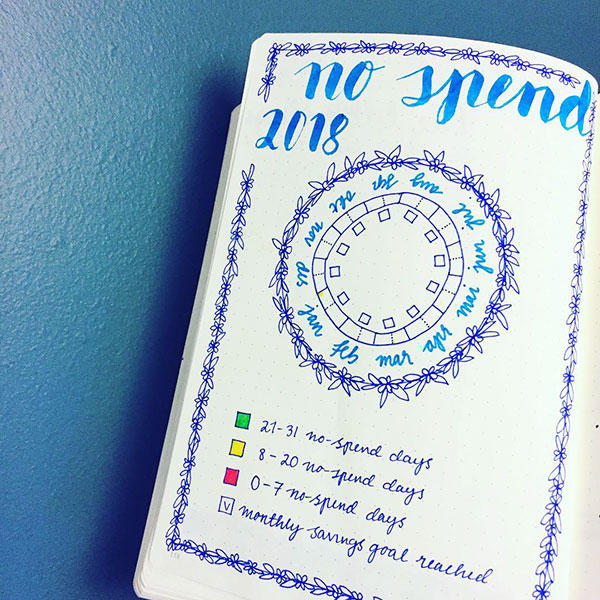 no spend
2018
jan
feb
mar
apr
mai
jun
jul
aug
sep
okt
nov
des
21-31 no-spend days
8-20 no-spend days
0-7 no-spend days
v monthly savings goal reached